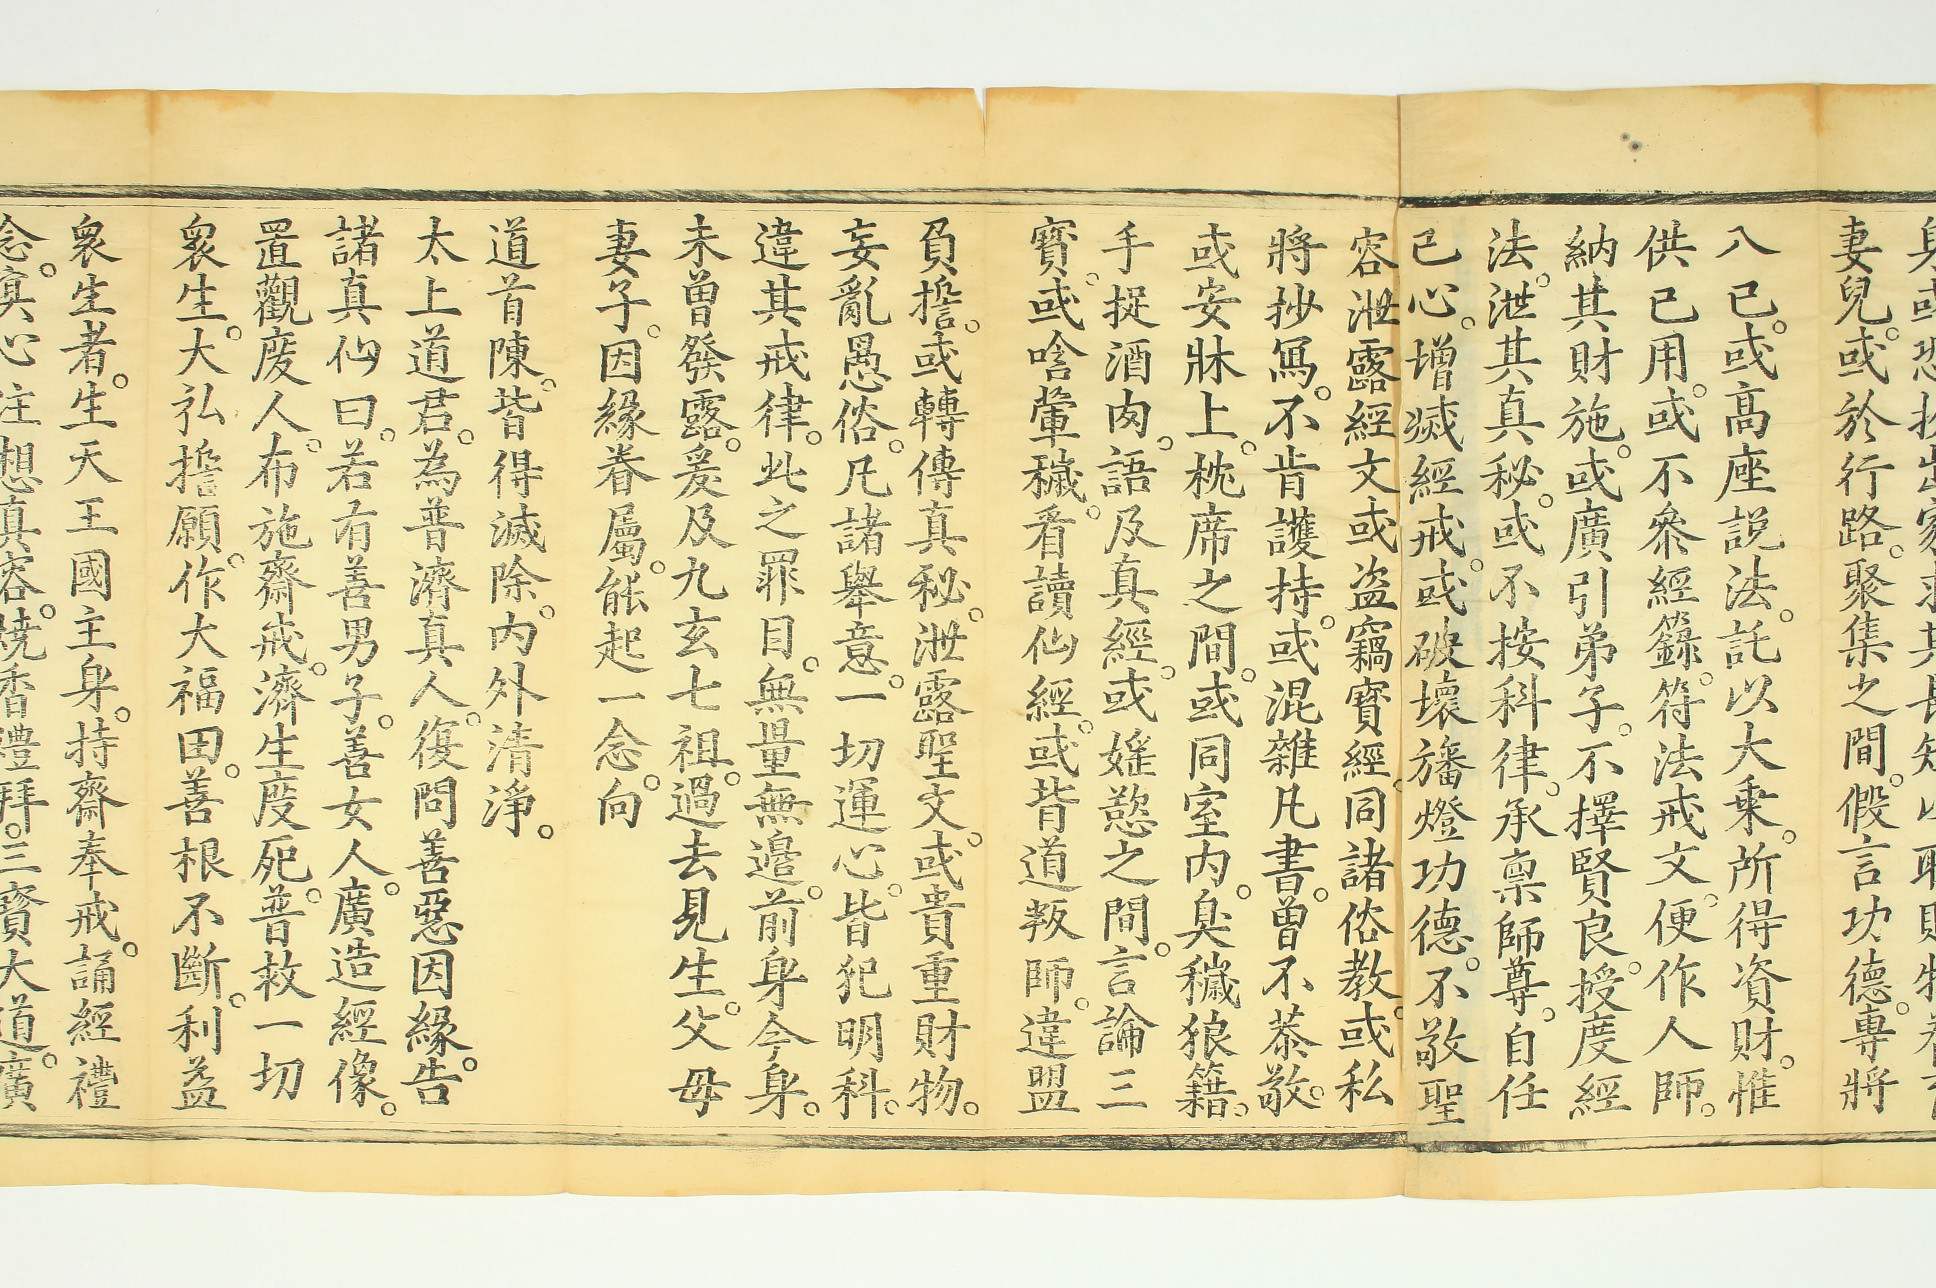 臭或恐投出家求其長短以取財物養育
妻兒。或於行路。聚集之間。假言功德。專將
入已。或高座說法。託以大乘。所得資財。惟
供已用。或不叅經籙。符法戒文。便作人師。
納其財施。或廣引弟子。不擇賢良。授度經
法。泄其真秘。或不按科律。承禀師尊。自任
已心。增滅經戒。或破壞旛燈功德。不敬聖
容泄露經文或盗竊寳經。同諸俗教。或私
將抄寫。不肯護持。或混雜凡書。曽不恭敬。
或安牀上。枕席之間。或同室内。臭穢狼籍。
手捉酒肉。語及真經。或婬慾之間。言論三
寳。或啥葷穢。看讀仙經。或背道叛師。違盟
負擔。或轉傳真秘。泄露聖文。或貴重財物。
妄亂愚俗。凡諸舉意。一切運心。皆犯明科。
違其戒律。此之罪目。無量無邉。前身今身。
未曽發露。爰及九玄七祖。過去見生。父母
妻子。因緣眷屬。能起一念。向
道首陳。皆得滅除。内外清淨。
太上道君。為普濟真人。復問善惡因緣。告
諸真仙曰。若有善男子。善女人。廣造經像。
置觀度人。布施齋戒。濟生度死。普救一切
衆生。大弘擔願。作大福田。善根不斷。利益
衆生者。生天王國主身。持齋奉戒。誦經禮
念。真心注想真容。燒香禮拜。三寳大道。廣